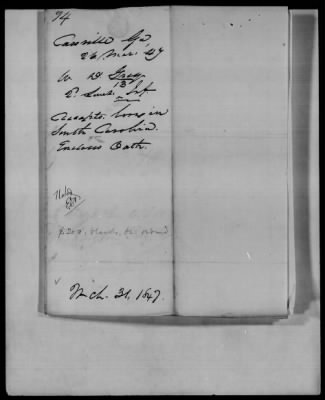 94
Cassville Ga,
26 Mar. 47
W D Gray
13th
2d Lieut. Inf
Accepts, born in
South Carolina.
Encloses Oath.
Noted
Mch. 31, 1847.